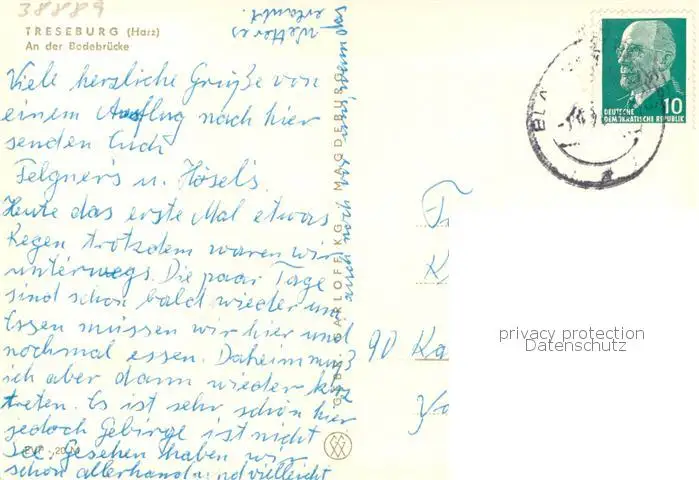 38889
TRESEBURG (Harz)
An der Bodebrücke
Viele herzliche Grüße von
einem Ausflug nach hier
senden Euch
Felgner's u. Hösel's.
Heute das erste Mal etwas
Regen trotzdem waren wir
unterwegs. Die paar Tage
sind schon bald wieder um
Essen müssen wir hier und
nochmal essen. Daheim muß
ich aber dann wieder kurz
treten. Es ist sehr schön hier
jedoch Gebirge ist nicht
See. Gesehen haben wir
schon allerhand und vielleicht
wetter es
erlaubt.
KG / MAGDEBURG
DEUTSCHE
DEMOKRATISCHE REPUBLIK
10
90 Ka
privacy protection
Datenschutz